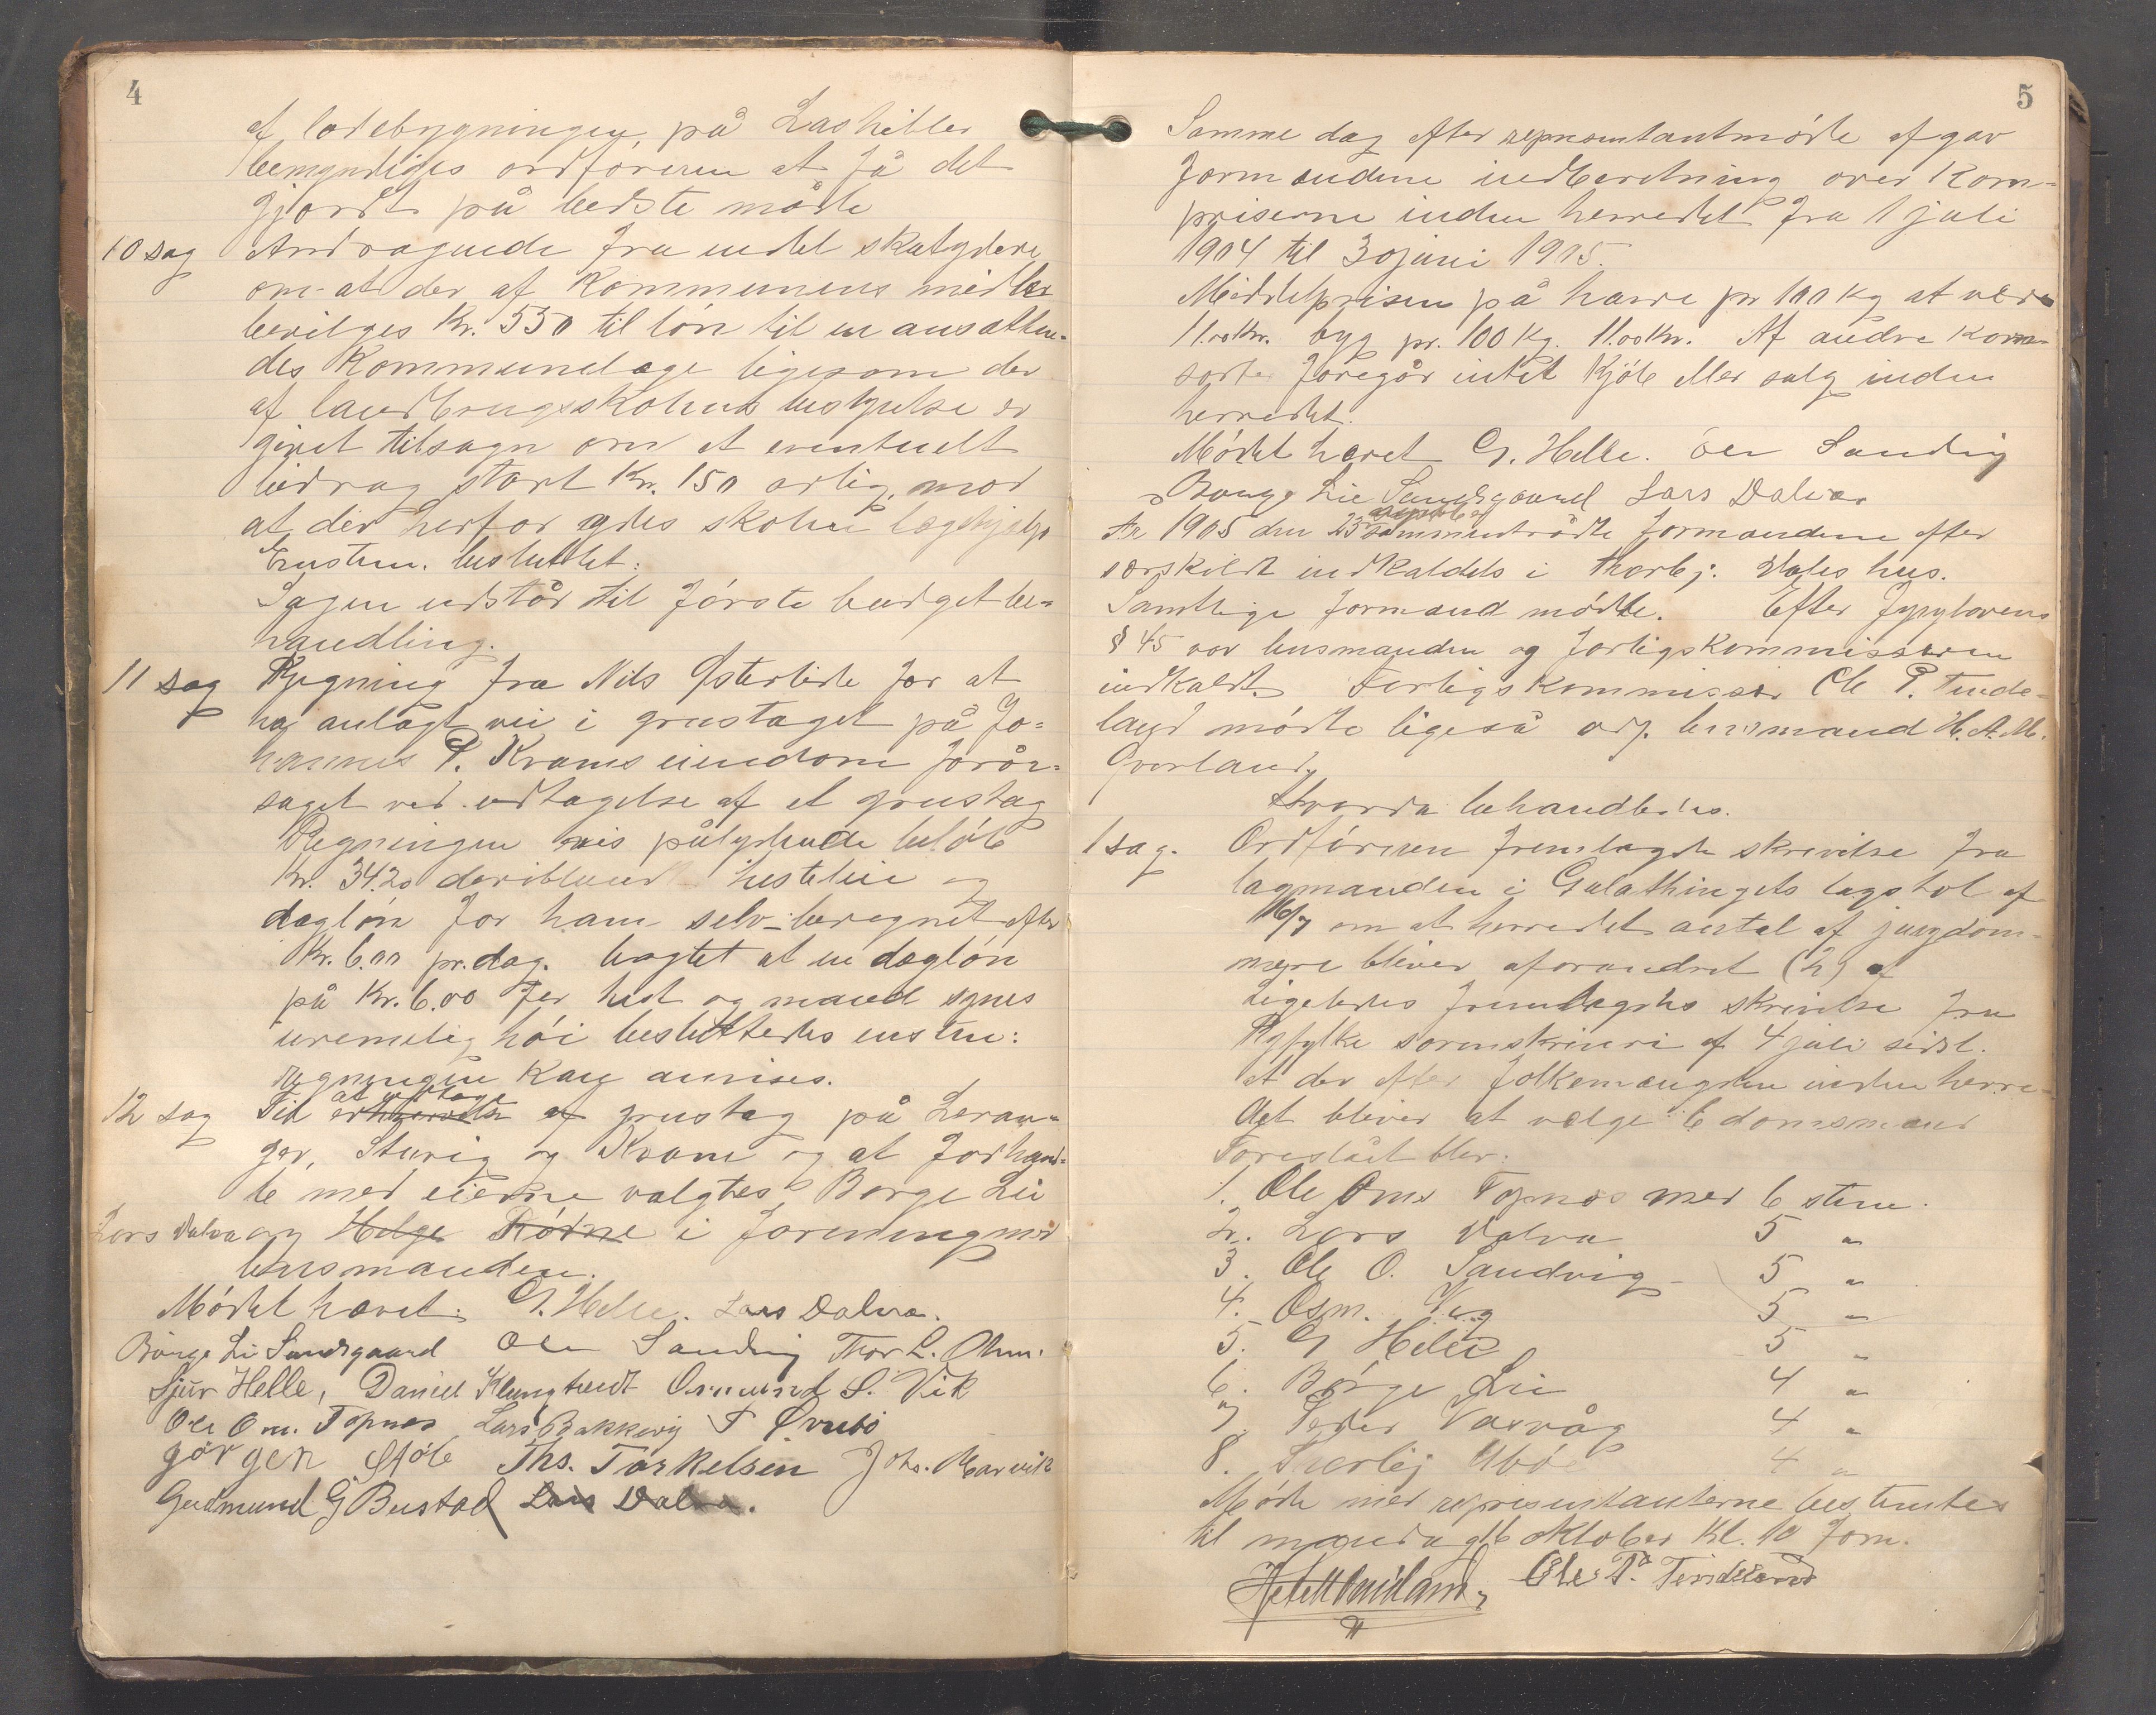 4
af ladebygningen på Lashiller
bemyndiges ordføreren at få det
gjordt på bedste måde
10 sag Andragende fra endel skatydere
om at der af Kommunens midler
bevilges Kr. 550 til løn til en ansætten-
des Kommunelæge ligesom der
af landbrugsskolens bestyrelse er
givet tilsagn om et eventuelt
bidrag stort Kr. 150 årlig, mod
at der herfor ydes skolen lægehjælp
Enstem. besluttet:
Sagen udstår til første budget be-
handling.
11 sag Regning fra Nils Østerlide for at
ha anlagt vei i grustaget på Jo-
hannes P. Kvams eiendom forår-
saget ved udtagelse af et grustag
Regningen vis pålydende beløb
Kr. 34.20 deriblandt hesteleie og
dagløn for ham selv beregnet efter
Kr. 6.00 pr. dag. bagtet at en dagløn
på Kr. 6.00 for hest og mand synes
urimelig høi besluttedes enstem:
regningen Kan anvises.
at udtage
12 sag Til erhvervelse af grustag på Leran-
ger, Stuvig og Kvam og at forhand-
le med eierne valgtes Børge Lie
Lars Dalva og Helge Rødne i forening med
lensmanden.
Mødet hævet. G. Helle. Lars Dalva.
Børge Li Sandsgaard Ole Sandvig Thor L. Ohm.
Sjur Helle, Daniel Klungtvedt Osmund S. Vik
Ole Om. Topnes Lars Bakkevig T Øvrebø
Jørgen Støle Ths. Torkelsen Johs. Marvik
Gudmund G Bustad Lars Dalva.
5
Samme dag efter representantmøde afgav
formændene indberetning over Korn-
priserne inden herredet fra 1 juli
1904 til 30 juni 1905.
Middelprisen på havre pr 100 kg at være
11.00 Kr. byg pr. 100 Kg. 11.00 Kr. Af andre Korn-
sorter foregår intet Kjøb eller salg inden
herredet.
Mødet hævet G. Helle. Ole Sandvig
Børge Lie Sandsgaard Lars Dalva
september
År 1905 den 23 sammentrådte formændene efter
særskildt indkaldels i Thorbj. Ubøs hus.
Samtlige formænd mødte. Efter Jurylovens
§ 45 var lensmanden og forligskommissæren
indkaldt. Forligskommissær Ole P. Tinde-
land mødte ligeså odf. lensmand H. A. M.
Overland,
Hvorda behandledes.
1 sag. Ordføreren fremlagde skrivelse fra
lagmanden i Gulathingets lagstol af
16/7 om at herredets antal af jurydom-
mere bliver uforandret (2) of
Ligeledes fremlagdes skrivelse fra
Ryfylke sorenskriveri af 4 juli sidst.
at der efter folkemængden inden herre-
det bliver at vælge 6 domsmænd
Foreslået blev:
1. Ole Oms Topnes med 6 stem.
2. Lars Dalva 5 "
3. Ole O. Sandvig 5 "
4. Osm. Vig 5 "
5. G Helle 5 "
6. Børge Lie 4 "
7. Peder Vasvåg 4 "
8. Thorbj Ubøe 4 "
Møde med representanterne bestemtes
til mandag d 16 oktober Kl. 10 form.
Ole P. Tindeland